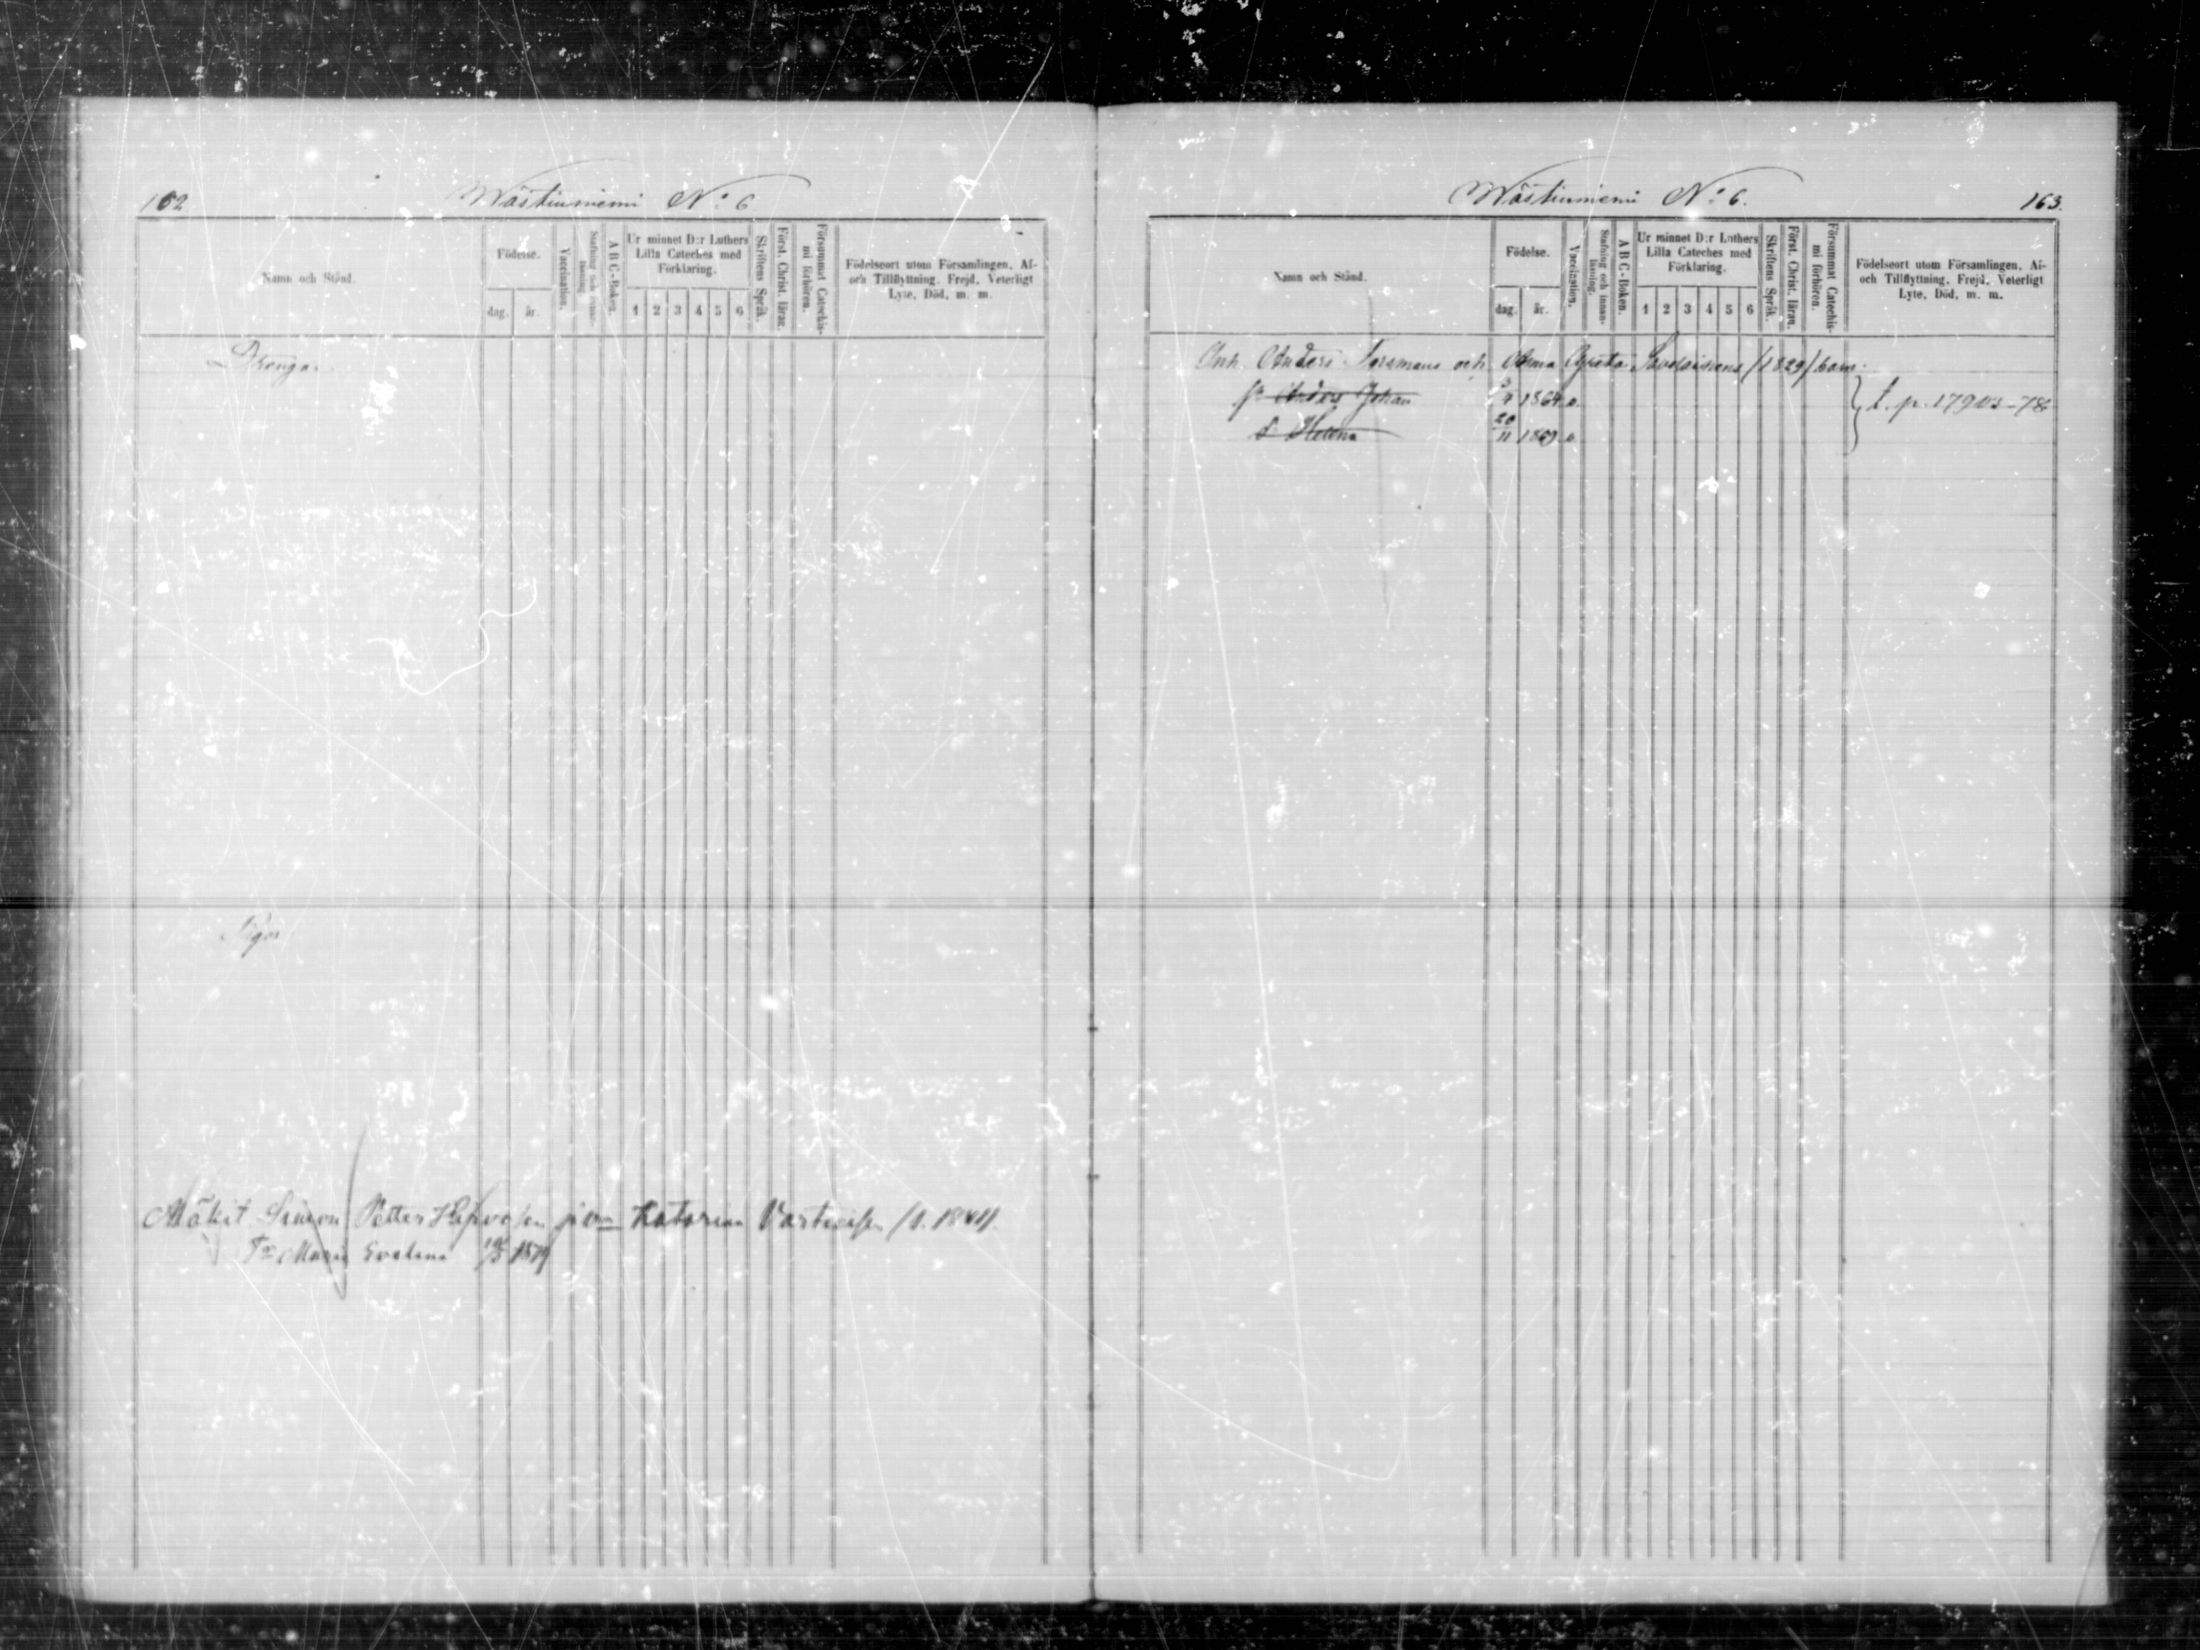 162 Wästiniemi N:o 6
Namn och Stånd.
Födelse.
dag. år.
Vaccination.
Stafning och innanläsning.
A B C-Boken.
Ur minnet D:r Luthers Lilla Cateches med Förklaring.
1 2 3 4 5 6
Skriftens Språk.
Först. Christ. läran.
Försummat Catechismi förhören.
Födelseort utom Församlingen, Af- och Tillflyttning. Frejd, Veterligt Lyte, Död, m. m.
Drengar
Pigor
Mökit Simon Petter och Katarina (f. 1841)
Maria Evelina 1879
Wästiniemi N:o 6. 163.
Namn och Stånd.
Födelse.
dag. år.
Vaccination.
Stafning och innanläsning.
A B C-Boken.
Ur minnet D:r Luthers Lilla Cateches med Förklaring.
1 2 3 4 5 6
Skriftens Språk.
Först. Christ. läran.
Försummat Catechismi förhören.
Födelseort utom Församlingen, Af- och Tillflyttning. Frejd, Veterligt Lyte, Död, m. m.
Enk. Anders Forsmans och Anna Greta Savolainens (1829) barn.
Anders Johan 1864 v.
d. Helena 20/11 1869 v.
f. p. 179 -78